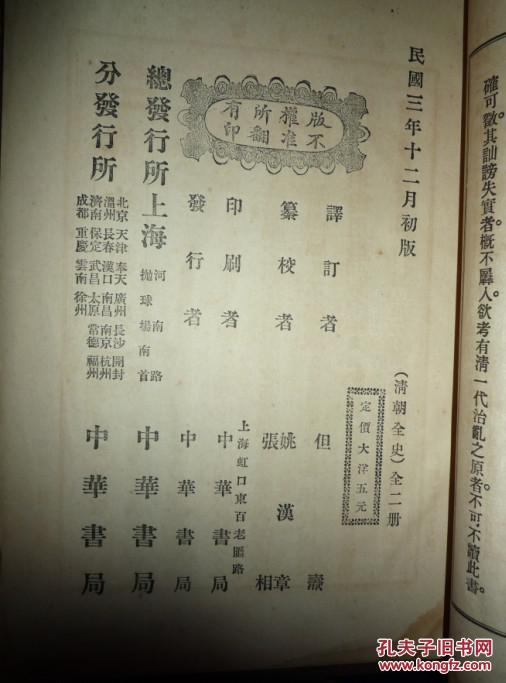 確可徵其訕謗失實者槪不羼人欲考有淸一代治亂之原者不可不讀此書。
民國三年十二月初版
(淸朝全史)全二册
定價大洋五元
版權所有
不准翻印
譯訂者 但燾
纂校者 姚漢章 張相
印刷者 上海虹口東百老匯路 中華書局
發行者 中華書局
總發行所 上海 河南路拋球場南首 中華書局
分發行所
北京 天津 奉天 廣州 長沙 開封
溫州 長春 漢口 南昌 南京 杭州
濟南 保定 武昌 太原 常德 福州
成都 重慶 雲南 徐州
中華書局
孔夫子旧书网
www.kongfz.com